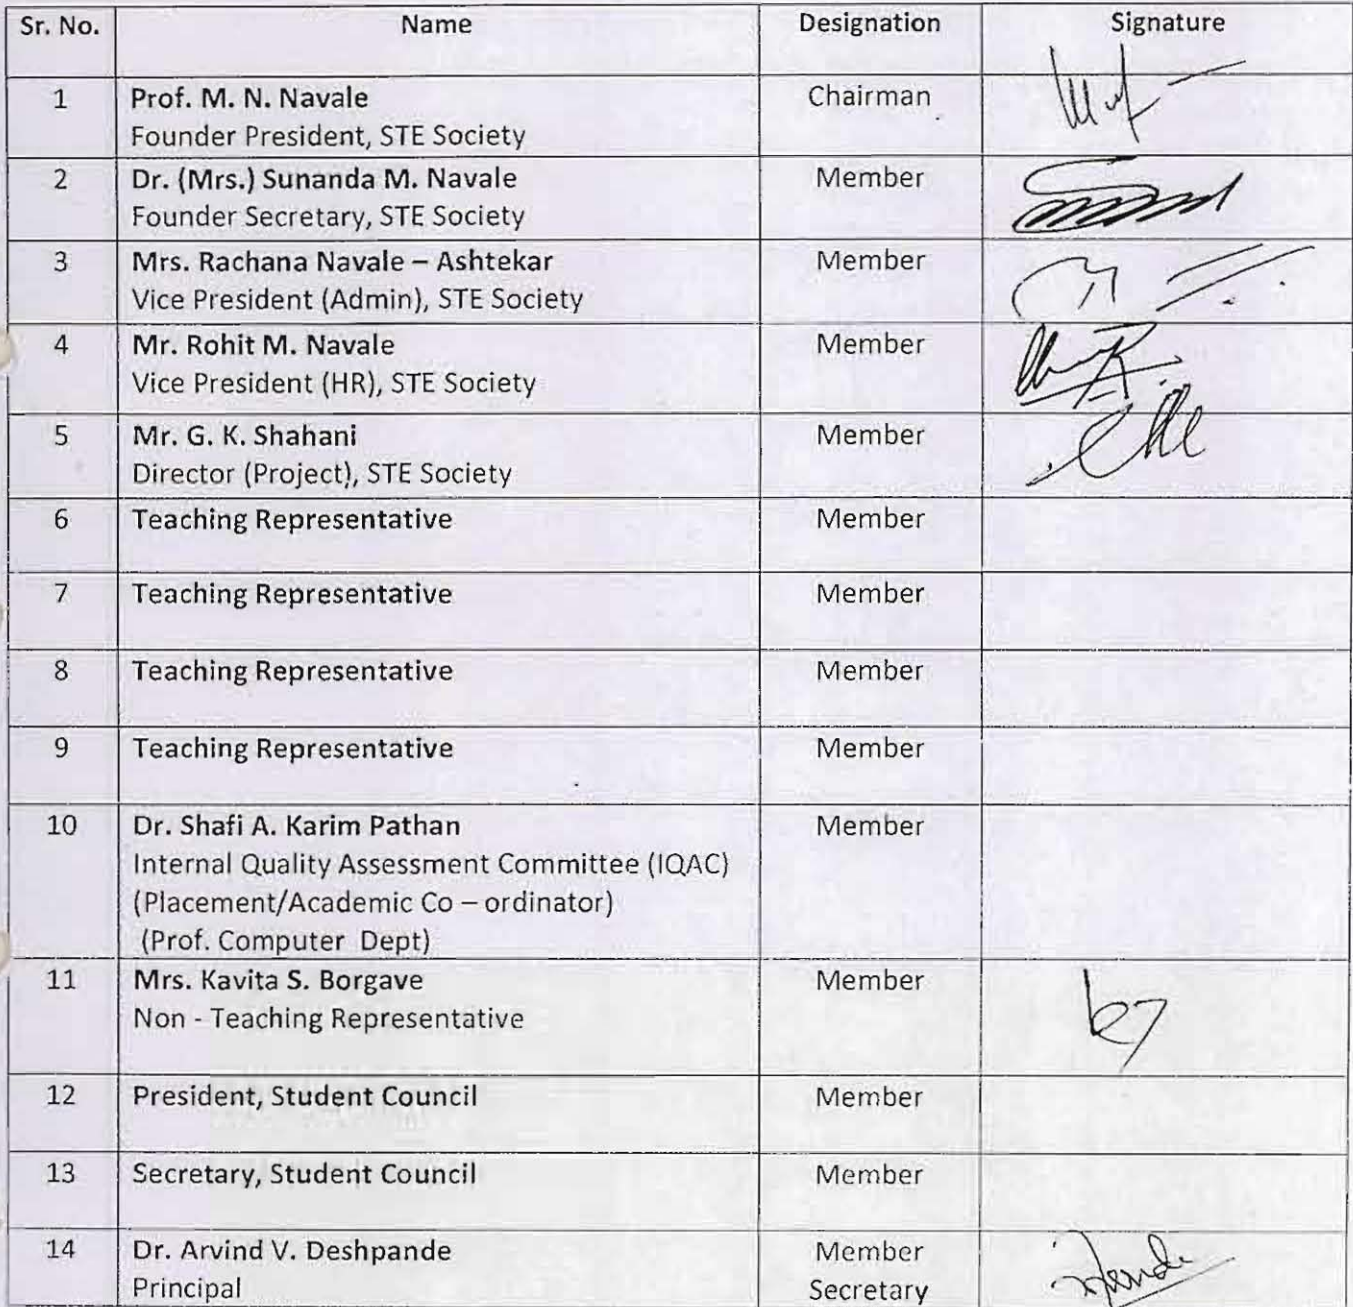 Sr. No. Name Designation Signature
1 Prof. M. N. Navale Chairman
Founder President, STE Society
2 Dr. (Mrs.) Sunanda M. Navale Member
Founder Secretary, STE Society
3 Mrs. Rachana Navale – Ashtekar Member
Vice President (Admin), STE Society
4 Mr. Rohit M. Navale Member
Vice President (HR), STE Society
5 Mr. G. K. Shahani Member
Director (Project), STE Society
6 Teaching Representative Member
7 Teaching Representative Member
8 Teaching Representative Member
9 Teaching Representative Member
10 Dr. Shafi A. Karim Pathan Member
Internal Quality Assessment Committee (IQAC)
(Placement/Academic Co – ordinator)
(Prof. Computer Dept)
11 Mrs. Kavita S. Borgave Member
Non - Teaching Representative
12 President, Student Council Member
13 Secretary, Student Council Member
14 Dr. Arvind V. Deshpande Member
Principal Secretary